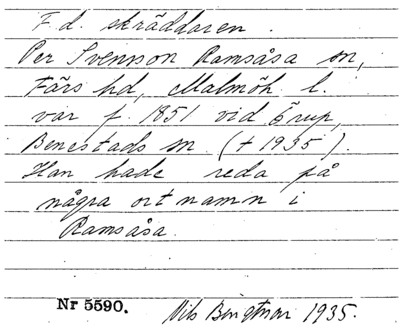 F. d. skräddaren.
Per Svensson Ramsåsa sn,
Färs hd, Malmöh. l.
var f. 1851 vid Örup,
Benestads sn. († 1935).
Han hade reda på
några ortnamn i
Ramsåsa.
Nr 5590. Nils Bengtsson 1935.